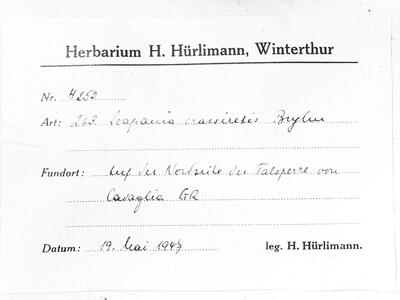 Herbarium H. Hürlimann, Winterthur
Nr. 4252
Art: 263. Scapania crassiretis Bryhn
Fundort: Auf der Nordseite der Talsperre von
Cavaglia GR
Datum: 19. Mai 1947 leg. H. Hürlimann.